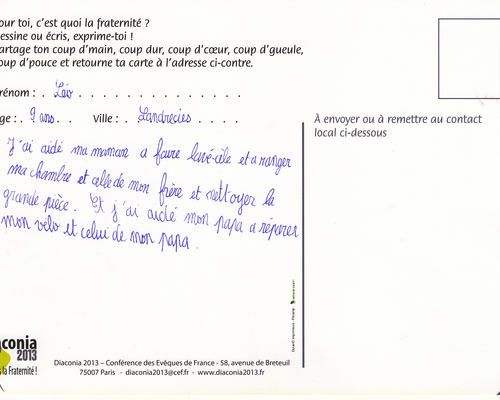 our toi, c'est quoi la fraternité ?
essine ou écris, exprime-toi !
artage ton coup d'main, coup dur, coup d'cœur, coup d'gueule,
oup d'pouce et retourne ta carte à l'adresse ci-contre.
rénom : . Léo . . . . . . . . . . . .
ge : . 9 ans . . Ville : . Landrecies . . . . .
J'ai aidé ma maman a faire lavé-cèle et a ranger
ma chambre et celle de mon frère et nettoyer la
grande pièce. Et j'ai aidé mon papa a réparer
mon vélo et celui de mon papa.
À envoyer ou à remettre au contact
local ci-dessous
aconia
2013
la Fraternité !
Diaconia 2013 – Conférence des Evêques de France - 58, avenue de Breteuil
75007 Paris - diaconia2013@cef.fr - www.diaconia2013.fr